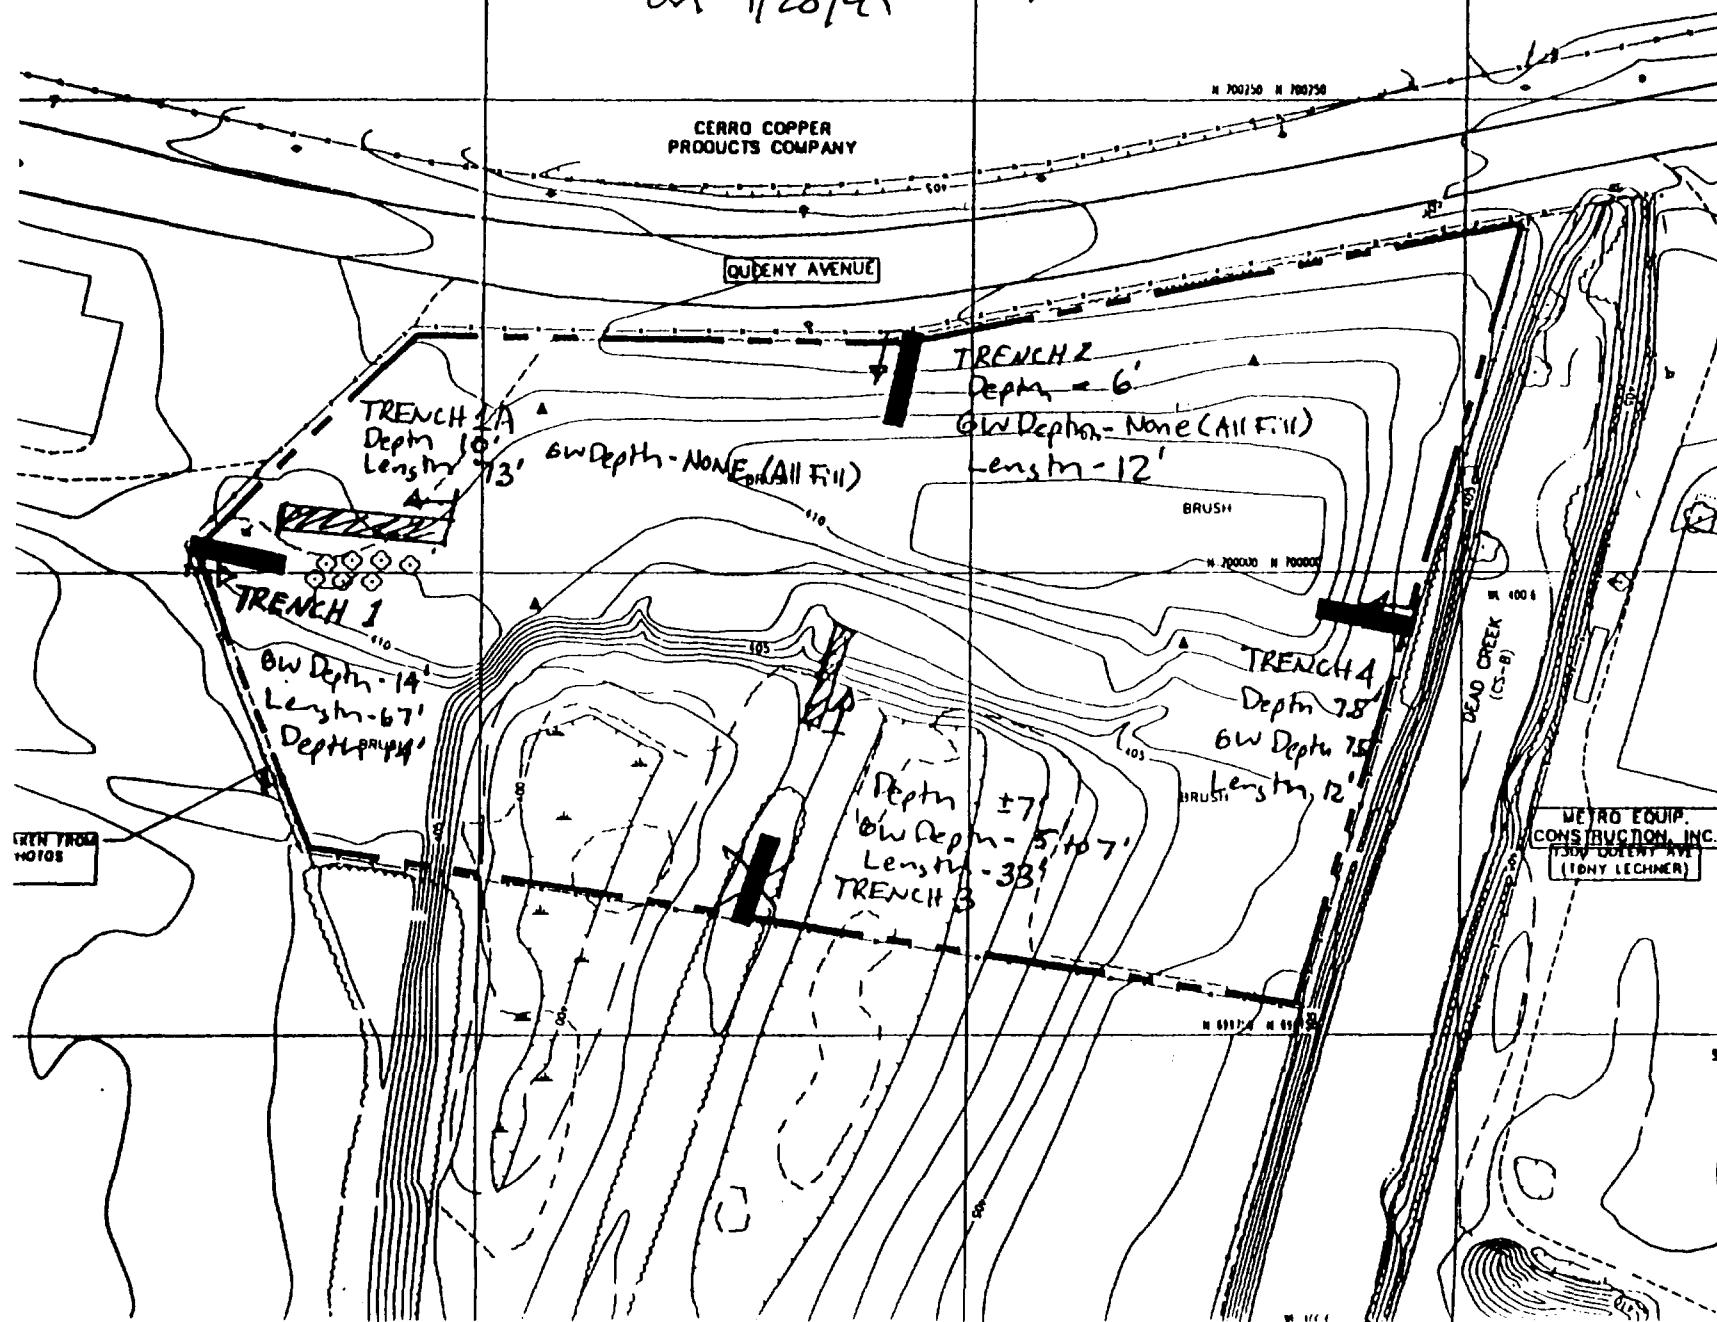 N 700250 N 700250
CERRO COPPER
PRODUCTS COMPANY
405
QUEENY AVENUE
TRENCH 2
Depth = 6'
GW Depth - None (All Fill)
Length - 12'
TRENCH 1A
Depth 10'
Length 73'
GW Depth - NONE (All Fill)
BRUSH
410
BRUSH
N 700000 N 700000
405
TRENCH 1
410
GW Depth - 14'
Length - 67'
Depth
BRUSH
405
TRENCH 4
Depth 7.8'
GW Depth 7.5'
Length 12'
BRUSH
405
DEAD CREEK
(CS-B)
Depth - ±7'
GW Depth - 5' to 7'
Length - 33'
TRENCH 3
400
METRO EQUIP.
CONSTRUCTION, INC.
QUEENY AVE
(TONY LECHNER)
AKEN FROM
HOTOS
400
405
410